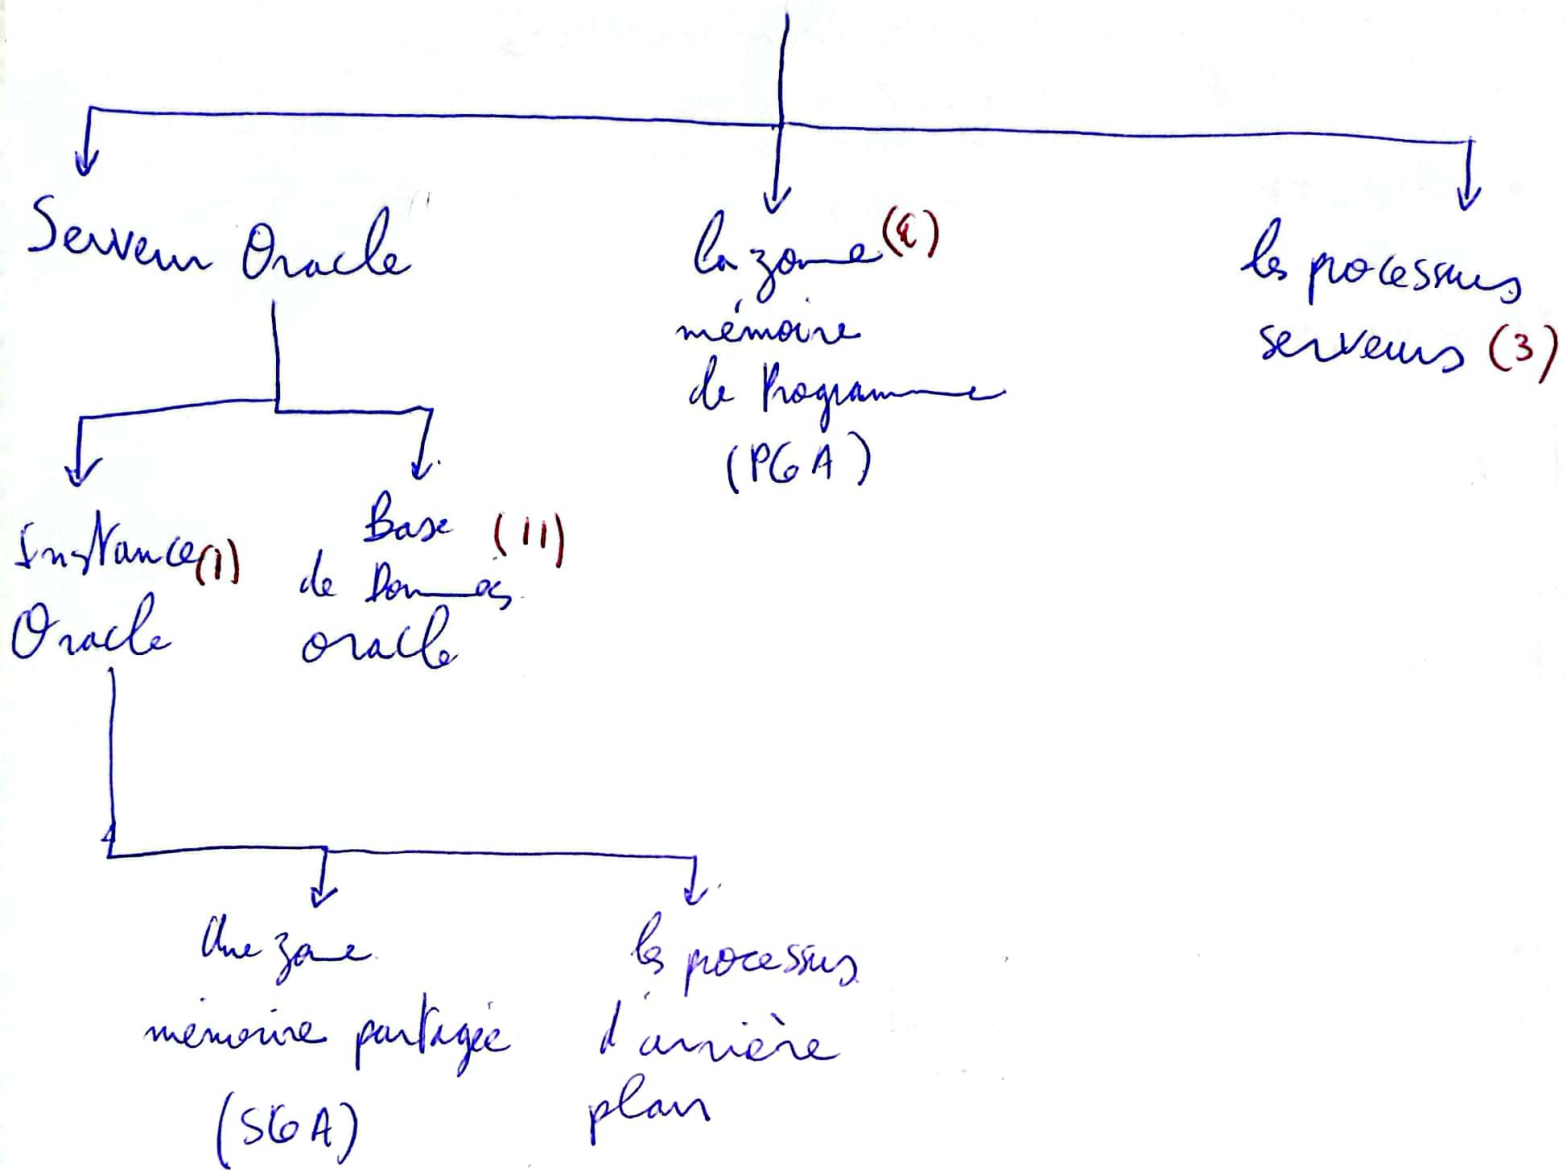 Serveur Oracle
la zone
mémoire
de Programme
(PGA)
les processus
serveurs (3)
Instance (1)
Oracle
Base (11)
de Données
oracle
Une zone
mémoire partagée
(SGA)
les processus
d'arrière
plan